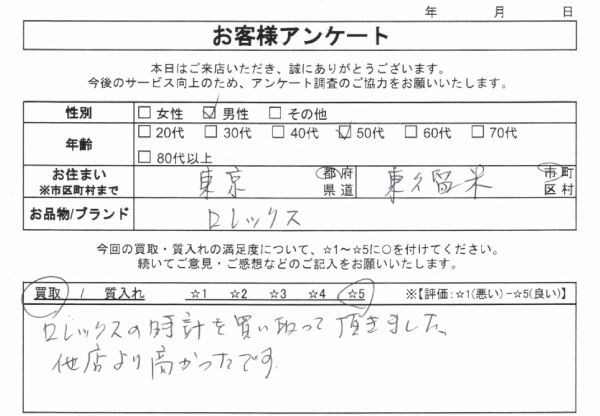 年 月 日
お客様アンケート
本日はご来店いただき、誠にありがとうございます。
今後のサービス向上のため、アンケート調査のご協力をお願いいたします。
性別 □ 女性 ☑ 男性 □ その他
年齢 □ 20代 □ 30代 □ 40代 ☑ 50代 □ 60代 □ 70代
□ 80代以上
お住まい 東京 都府 東久留米 市町
※市区町村まで 県道 区村
お品物/ブランド ロレックス
今回の買取・質入れの満足度について、☆1～☆5に○を付けてください。
続いてご意見・ご感想などのご記入をお願いいたします。
買取 / 質入れ ☆1 ☆2 ☆3 ☆4 ☆5 ※【評価:☆1(悪い)−☆5(良い)】
ロレックスの時計を買い取って頂きました。
他店より高かったです